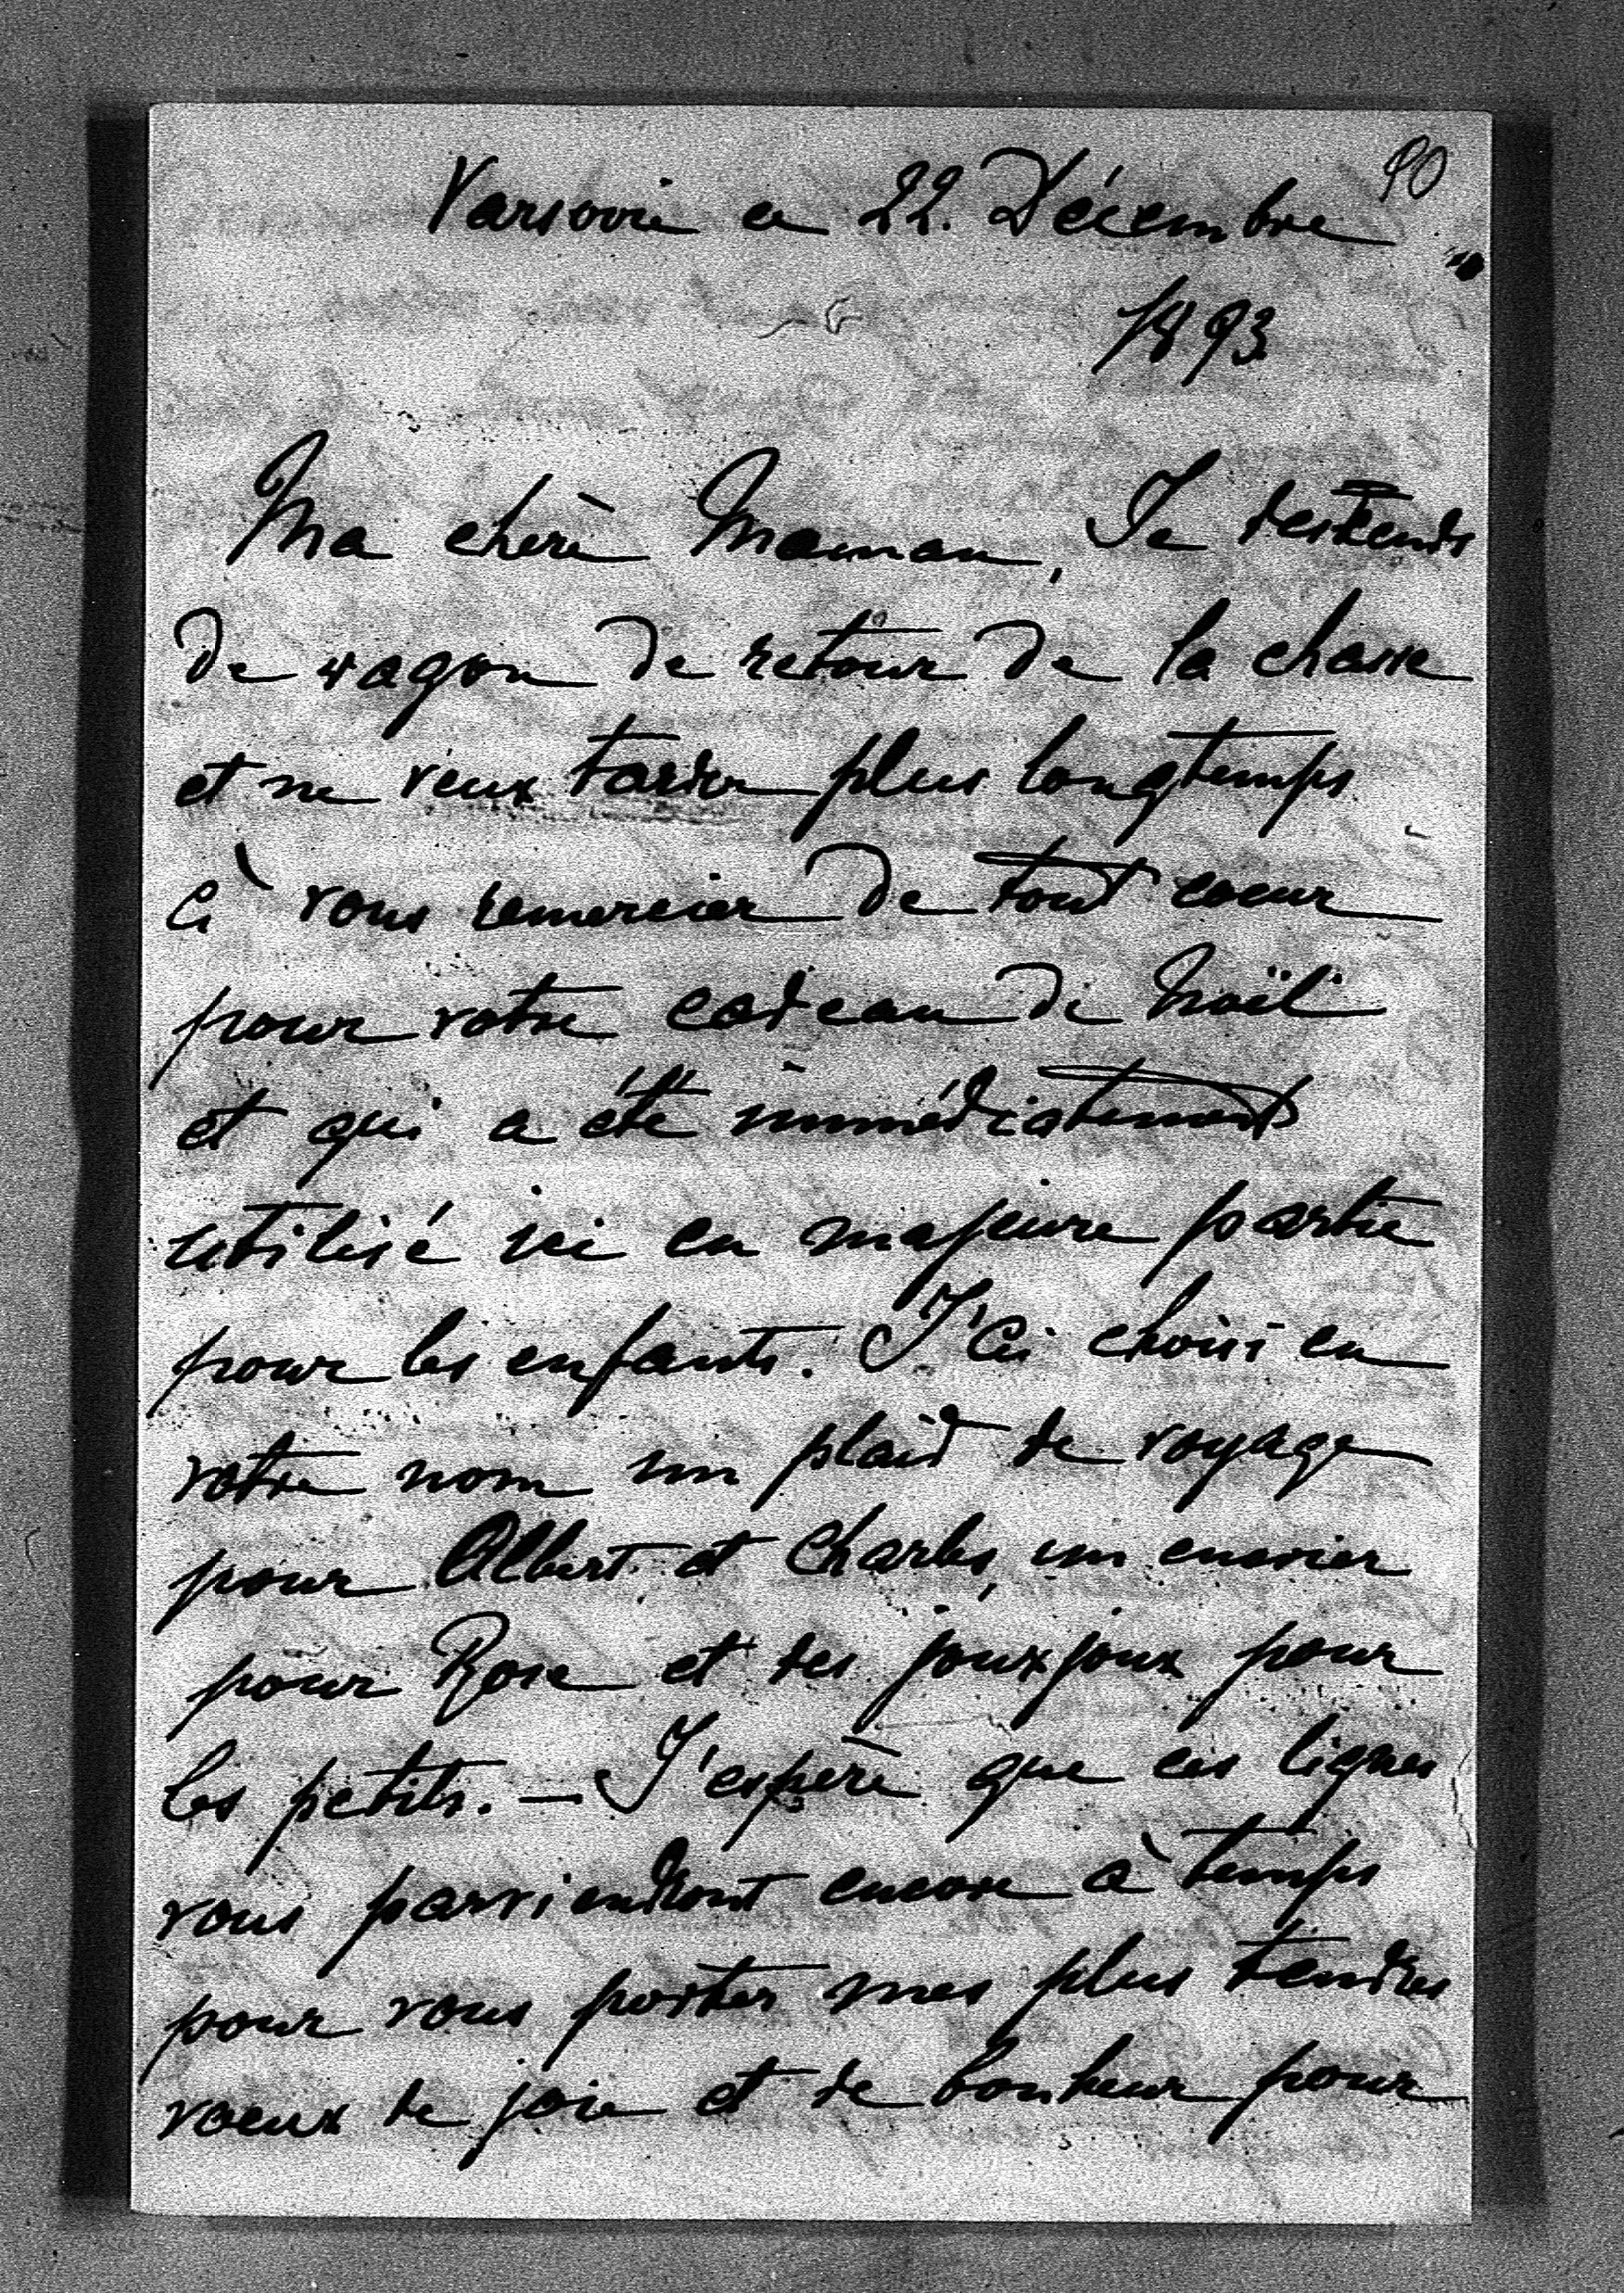 90
Varsovie ce 22. Décembre
1893
Ma chère Maman, Je descends
de wagon de retour de la chasse
et ne veux tarder plus longtemps
à vous remercier de tout coeur
pour votre cadeau de Noël
et qui a été immédiatement
utilisé ici en majeure partie
pour les enfants. J'ai choisi en
votre nom un plaid de voyage
pour Albert et Charles, un encrier
pour Rose et des jouxjoux pour
les petits. — J'espère que ces lignes
vous parviendront encore à temps
pour vous porter mes plus tendres
voeux de joie et de bonheur pour